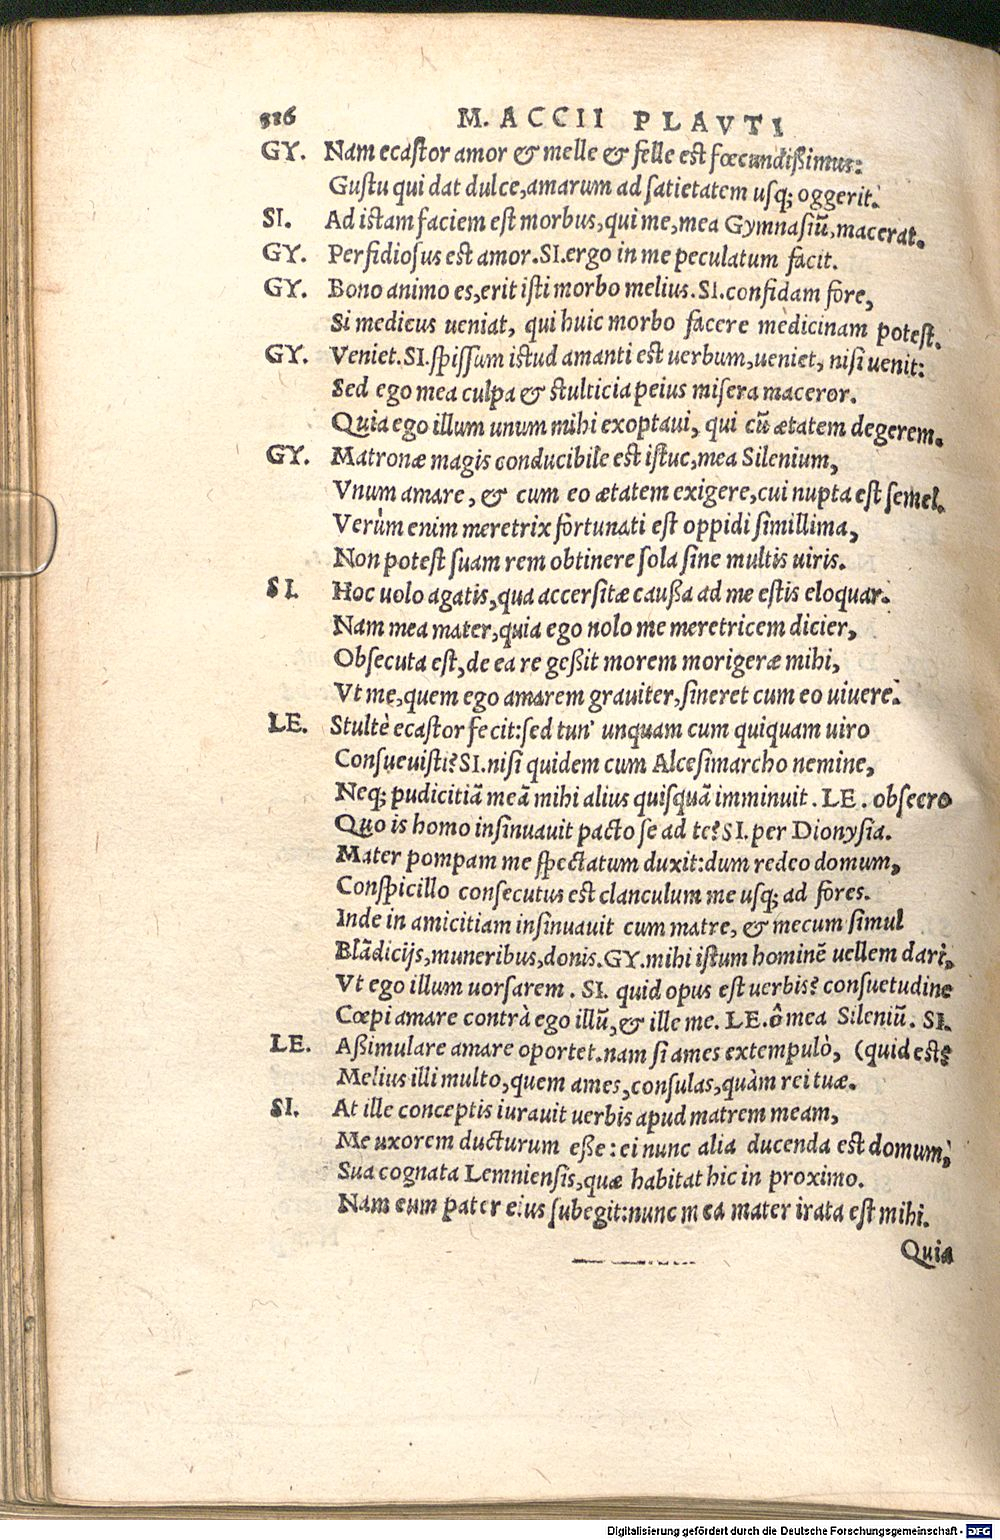 M. ACCII PLAVTI
GY. Nam ecastor amor & melle & felle est fœcundißimus:
Gustu qui dat dulce, amarum ad satietatem usq; oggerit.
SI. Ad istam faciem est morbus, qui me, mea Gymnasiũ, macerat.
GY. Perfidiosus est amor. SI. ergo in me peculatum facit.
GY. Bono animo es, erit isti morbo melius. SI. confidam fore,
Si medicus ueniat, qui huic morbo facere mèdicinam potest.
GY. Veniet. SI. spissum istud amanti est uerbum, ueniet, nisi uenit:
Sed ego mea culpa & stulticia peius misera maceror.
Quia ego illum unum mihi exoptaui, qui cũ ætatem degerem.
GY. Matronæ magis conducibile est istuc, mea Silenium,
Vnum amare, & cum eo ætatem exigere, cui nupta est semel.
Verùm enim meretrix fortunati est oppidi simillima,
Non potest suam rem obtinere sola sine multis uiris.
SI. Hoc uolo agatis, qua accersitæ caußa ad me estis eloquar.
Nam mea mater, quia ego nolo me meretricem dicier,
Obsecuta est, de ea re geßit morem morigeræ mihi,
Vt me, quem ego amarem grauiter, sineret cum eo uiuere.
LE. Stultè ecastor fecit: sed tun' unquam cum quiquam uiro
Consueuisti? SI. nisi quidem cum Alcesimarcho nemine,
Neq; pudicitiã meã mihi alius quisquã imminuit. LE. obsecro
Quo is homo insinuauit pacto se ad te? SI. per Dionysia.
Mater pompam me spectatum duxit: dum redeo domum,
Conspicillo consecutus est clanculum me usq; ad fores.
Inde in amicitiam insinuauit cum matre, & mecum simul
Blãdicijs, muneribus, donis. GY. mihi istum hominẽ uellem dari,
Vt ego illum uorsarem. SI. quid opus est uerbis? consuetudine
Cœpi amare contrà ego illũ, & ille me. LE. ô mea Sileniũ. SI.
LE. Aßimulare amare oportet. nam si ames extempulò, (quid est?
Melius illi multo, quem ames, consulas, quàm rei tuæ.
SI. At ille conceptis iurauit uerbis apud matrem meam,
Me uxorem ducturum eße: ei nunc alia ducenda est domum,
Sua cognata Lemniensis, quæ habitat hic in proximo.
Nam eum pater eius subegit: nunc mea mater irata est mihi.
Quia
Digitalisierung gefördert durch die Deutsche Forschungsgemeinschaft - DFG